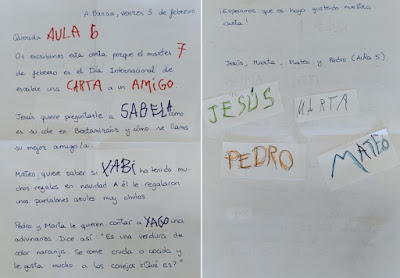 A Baxoa, venres 3 de febreiro
Querida AULA 6
Os escribimos esta carta porque el martes 7
de febrero es el Día Internacional de
escribir una CARTA a un AMIGO
Jesús quiere preguntarle a SABELA como
es su cole en Bertamiráns y cómo se llama
su mejor amigo/a.
Mateo, quiere saber si XABI ha tenido mu-
chos regalos en navidad. A él le regalaron
unos pantalones azules muy chulos.
Pedro y Marta le quieren contar a XAGO una
adivinanza. Dice así: "Es una verdura de
color naranja. Se come cruda o cocida y
le gusta mucho a los conejos ¿Qué es?"
¡Esperamos que os haya gustado nuestra
carta!
Jesús, Marta, Mateo y Pedro (Aula 5)
JESÚS MARTA
PEDRO MATEO